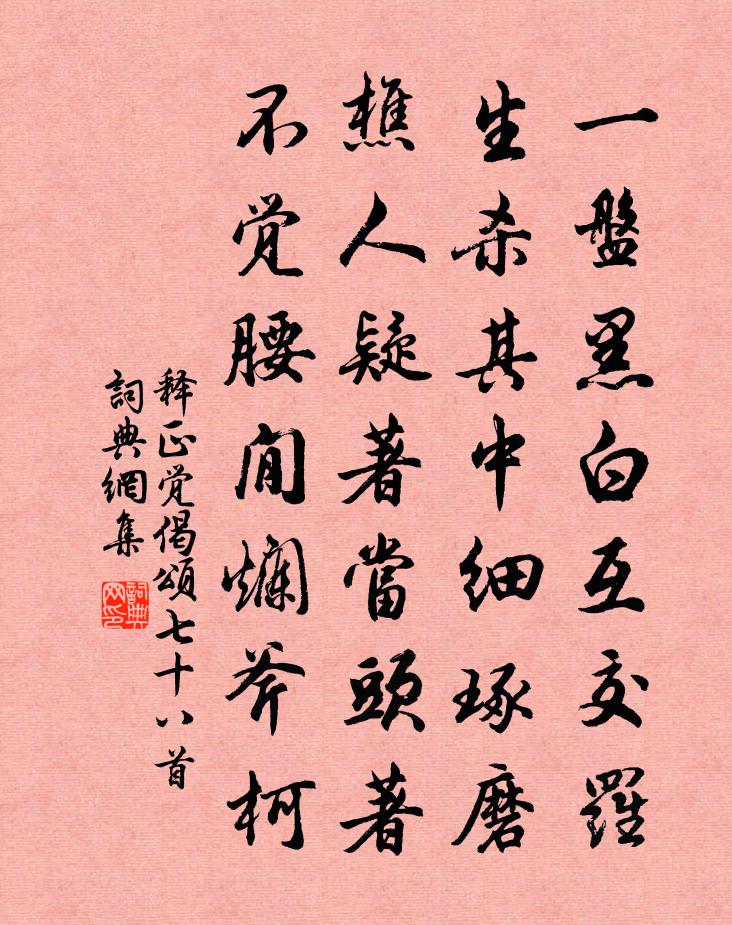 一盤黑白互交羅
生杀其中細琢磨
樵人疑著當頭著
不觉腰間爛斧柯
释正觉偈頌七十八首
詞典網集
詞典网印